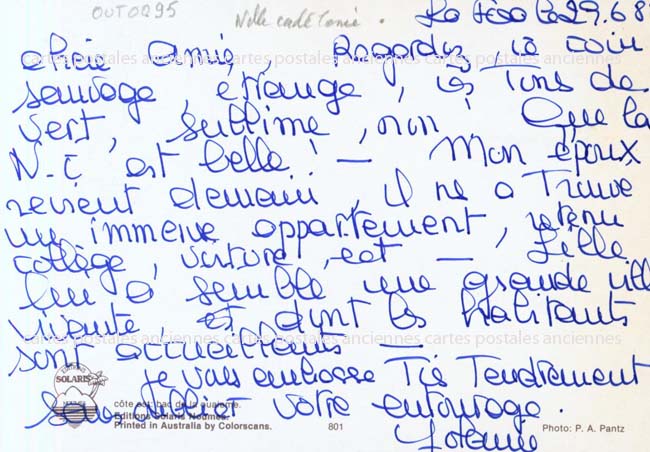 OUTO095 Nlle calédonie.
29.6.8
chère Amie, Regardez ce coin
sauvage, étrange, ces tons de
vert, sublime, non! Que la
N-C est belle! — Mon époux
revient demain, il ne a trouvé
un immense appartement, retenu
collège, voiture, ect — Lille
lui a semblé une grande ville
vivante et dont les habitants
sont accueillants —
je vous embrasse Très Tendrement
sans oublier votre entourage.
cartes postales anciennes cartes postales anciennes cartes postales anciennes
cartes postales anciennes cartes postales anciennes cartes postales anciennes
SOLARIS
côte est: bac de la ouaième.
Editions Solaris Nouméa.
Printed in Australia by Colorscans. 801 Photo: P. A. Pantz